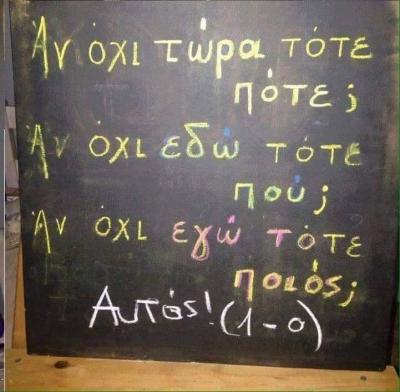 Αν όχι τώρα τότε
πότε;
Αν όχι εδώ τότε
πού;
Αν όχι εγώ τότε
ποιός;
Αυτός! (1-0)